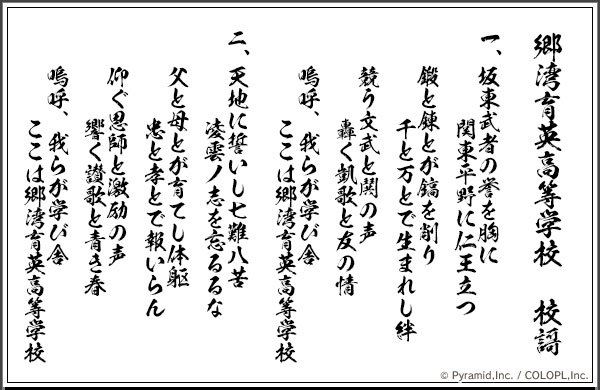 郷湾育英高等学校　校謌
一、坂東武者の誉を胸に
関東平野に仁王立つ
鍛と錬とが鎬を削り
千と万とで生まれし絆
競う文武と鬨の声
轟く凱歌と友の情
嗚呼、我らが学び舎
ここは郷湾育英高等学校
二、天地に誓いし七難八苦
凌雲ノ志を忘るるな
父と母とが育てし体躯
忠と孝とで報いらん
仰ぐ恩師と激励の声
響く讃歌と青き春
嗚呼、我らが学び舎
ここは郷湾育英高等学校
© Pyramid,Inc. / COLOPL,Inc.